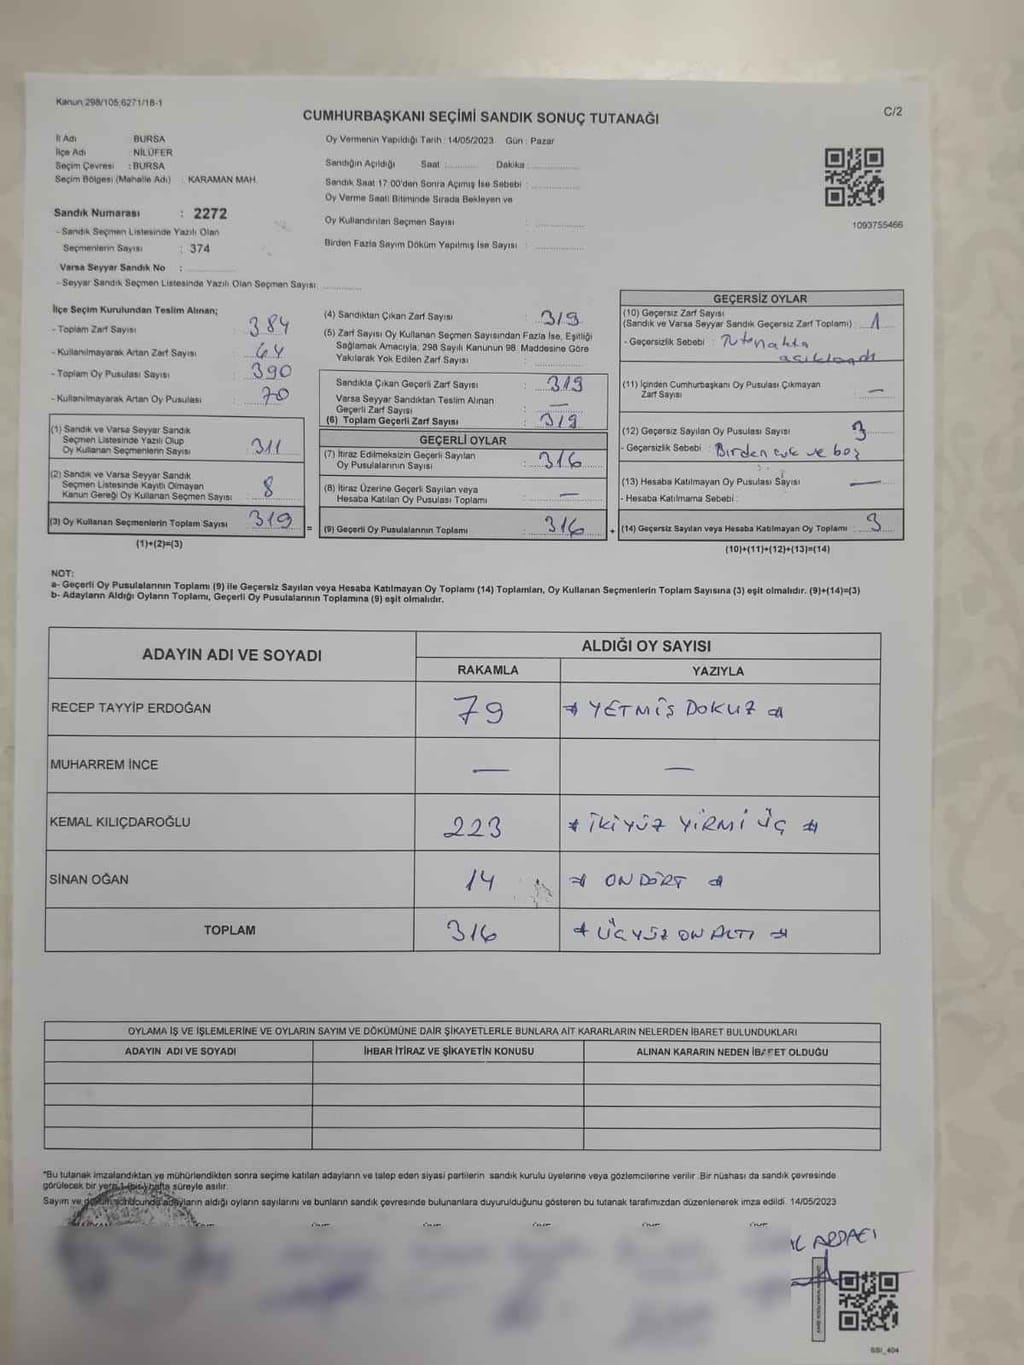 Kanun 298/105;6271/18-1
C/2
CUMHURBAŞKANI SEÇİMİ SANDIK SONUÇ TUTANAĞI
İl Adı BURSA
İlçe Adı NİLÜFER
Seçim Çevresi : BURSA
Seçim Bölgesi (Mahalle Adı) : KARAMAN MAH.
Oy Vermenin Yapıldığı Tarih : 14/05/2023 Gün : Pazar
Sandığın Açıldığı Saat : Dakika :
Sandık Saat 17:00'den Sonra Açılmış İse Sebebi :
Oy Verme Saati Bitiminde Sırada Bekleyen ve
Oy Kullandırılan Seçmen Sayısı :
Birden Fazla Sayım Döküm Yapılmış İse Sayısı :
1093755466
Sandık Numarası : 2272
- Sandık Seçmen Listesinde Yazılı Olan
Seçmenlerin Sayısı : 374
Varsa Seyyar Sandık No :
- Seyyar Sandık Seçmen Listesinde Yazılı Olan Seçmen Sayısı:
İlçe Seçim Kurulundan Teslim Alınan;
- Toplam Zarf Sayısı : 384
- Kullanılmayarak Artan Zarf Sayısı : 64
- Toplam Oy Pusulası Sayısı : 390
- Kullanılmayarak Artan Oy Pusulası : 70
(1) Sandık ve Varsa Seyyar Sandık
Seçmen Listesinde Yazılı Olup
Oy Kullanan Seçmenlerin Sayısı : 311
(2) Sandık ve Varsa Seyyar Sandık
Seçmen Listesinde Kayıtlı Olmayan
Kanun Gereği Oy Kullanan Seçmen Sayısı : 8
(3) Oy Kullanan Seçmenlerin Toplam Sayısı : 319
(1)+(2)=(3)
(4) Sandıktan Çıkan Zarf Sayısı : 319
(5) Zarf Sayısı Oy Kullanan Seçmen Sayısından Fazla İse, Eşitliği
Sağlamak Amacıyla; 298 Sayılı Kanunun 98. Maddesine Göre
Yakılarak Yok Edilen Zarf Sayısı :
Sandıkta Çıkan Geçerli Zarf Sayısı : 319
Varsa Seyyar Sandıktan Teslim Alınan
Geçerli Zarf Sayısı : —
(6) Toplam Geçerli Zarf Sayısı : 319
GEÇERLİ OYLAR
(7) İtiraz Edilmeksizin Geçerli Sayılan
Oy Pusulalarının Sayısı : 316
(8) İtiraz Üzerine Geçerli Sayılan veya
Hesaba Katılan Oy Pusulası Toplamı : —
= (9) Geçerli Oy Pusulalarının Toplamı : 316 +
GEÇERSİZ OYLAR
(10) Geçersiz Zarf Sayısı
(Sandık ve Varsa Seyyar Sandık Geçersiz Zarf Toplamı) : 1
- Geçersizlik Sebebi : Tutanakta
açıklandı
(11) İçinden Cumhurbaşkanı Oy Pusulası Çıkmayan
Zarf Sayısı : —
(12) Geçersiz Sayılan Oy Pusulası Sayısı : 3
- Geçersizlik Sebebi : Birden çok ve boş
(13) Hesaba Katılmayan Oy Pusulası Sayısı : —
- Hesaba Katılmama Sebebi :
(14) Geçersiz Sayılan veya Hesaba Katılmayan Oy Toplamı : 3
(10)+(11)+(12)+(13)=(14)
NOT:
a- Geçerli Oy Pusulalarının Toplamı (9) ile Geçersiz Sayılan veya Hesaba Katılmayan Oy Toplamı (14) Toplamları, Oy Kullanan Seçmenlerin Toplam Sayısına (3) eşit olmalıdır. (9)+(14)=(3)
b- Adayların Aldığı Oyların Toplamı, Geçerli Oy Pusulalarının Toplamına (9) eşit olmalıdır.
ADAYIN ADI VE SOYADI ALDIĞI OY SAYISI
RAKAMLA YAZIYLA
RECEP TAYYİP ERDOĞAN 79 # YETMİŞ DOKUZ #
MUHARREM İNCE — —
KEMAL KILIÇDAROĞLU 223 # İKİYÜZ YİRMİ ÜÇ #
SİNAN OĞAN 14 # ON DÖRT #
TOPLAM 316 # ÜÇYÜZ ON ALTI #
OYLAMA İŞ VE İŞLEMLERİNE VE OYLARIN SAYIM VE DÖKÜMÜNE DAİR ŞİKAYETLERLE BUNLARA AİT KARARLARIN NELERDEN İBARET BULUNDUKLARI
ADAYIN ADI VE SOYADI İHBAR İTİRAZ VE ŞİKAYETİN KONUSU ALINAN KARARIN NEDEN İBARET OLDUĞU
*Bu tutanak imzalandıktan ve mühürlendikten sonra seçime katılan adayların ve talep eden siyasi partilerin sandık kurulu üyelerine veya gözlemcilerine verilir. Bir nüshası da sandık çevresinde
görülecek bir yere 1 (bir) hafta süreyle asılır.
Sayım ve döküm sonucunda adayların aldığı oyların sayılarını ve bunların sandık çevresinde bulunanlara duyurulduğunu gösteren bu tutanak tarafımızdan düzenlenerek imza edildi. 14/05/2023
SSI_404